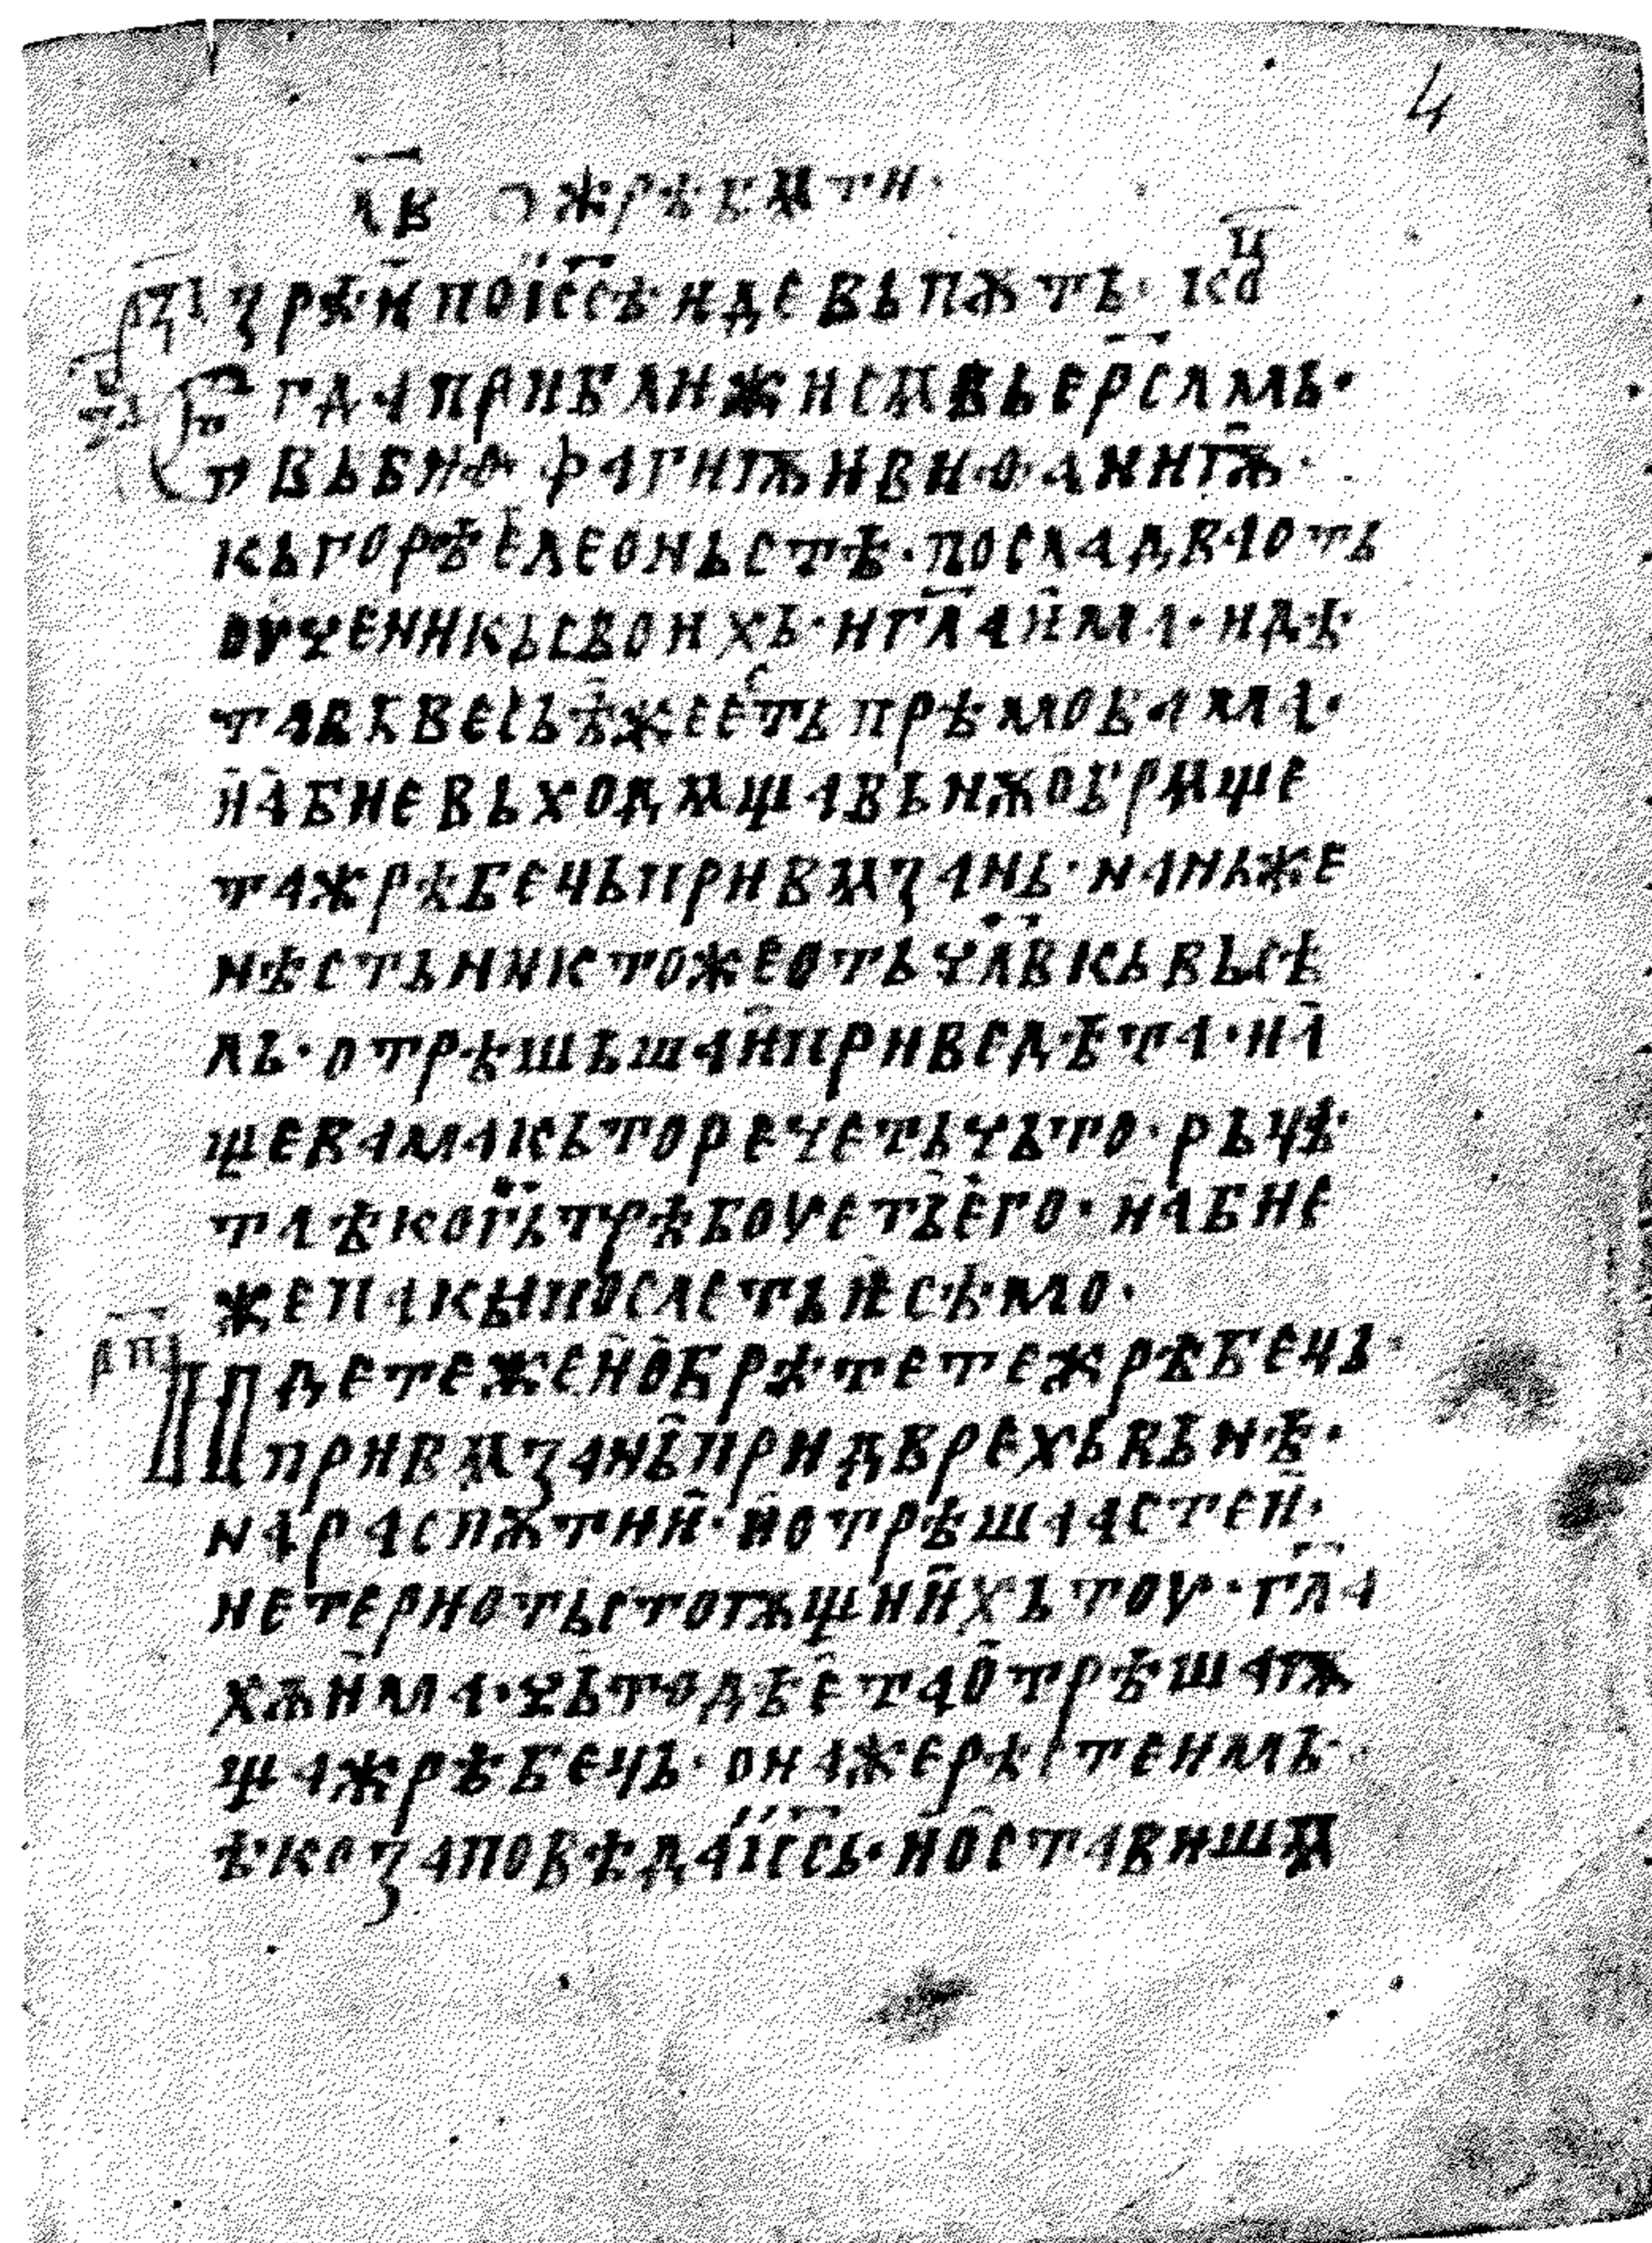 4
л҃в о жрѣбѧти·
ꙁрѣ· и҆ по і҆с҃ѣ· иде въ пѫть· кц҃
гда приближисѧ въ ер҃слмъ·
въ виѳ· фагиѭ и виѳаниѭ·
къ горѣ елеоньстѣ· посла два отъ
оученикъ своихъ· и гл҃а и҆ма· идѣ
та въ весь ѣ҆же естъ прѣмо вама·
и҆ а҆бие въходѧща въ нѫ о҆брѧще
та жрѣбець привѧꙁанъ· на ньже
нѣстъ никтоже отъ чл҃вкъ въсѣ
лъ· отрѣшъша и҆ приведѣта· и а҆
ще вама къто речетъ чьто· рьцѣ
та ѣко г҃ь трѣбоуетъ е҆го· и҆ абие
же пакы послетъ и҆ сѣмо·
дп҃
идете же и҆ о҆брѣтете жрѣбець·
привѧꙁанъ при дврехъ вънѣ·
на распѫтии҆· и҆ отрѣшаастеи҆·
не териотъ стоѭщии҆хъ тоу· гл҃а
хѫ и҆ма· чьто дѣе҆та о҆трѣшаѭ
ща жрѣбець· она же рѣстеимъ·
ѣко ꙁаповѣда і҆с҃съ· и҆ о҆ставишѧ